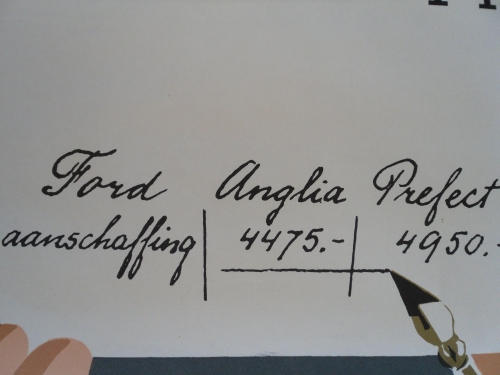 Ford Anglia Prefect
aanschaffing 4475.- 4950.-